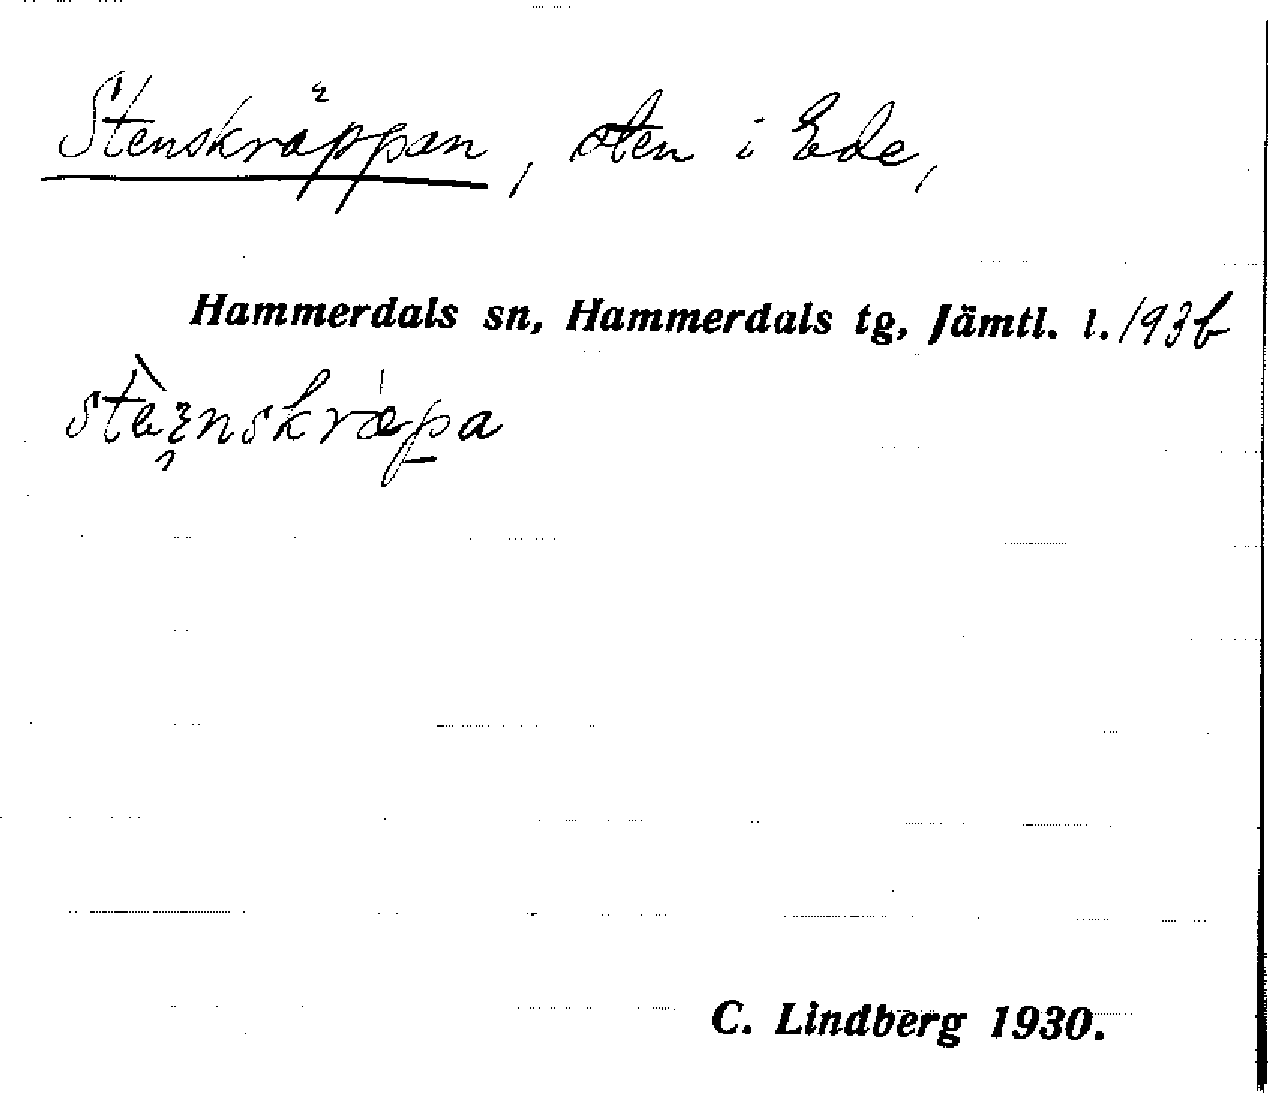 Stenskräppan, sten i Ede,
Hammerdals sn, Hammerdals tg, Jämtl. l. 193b
C. Lindberg 1930.